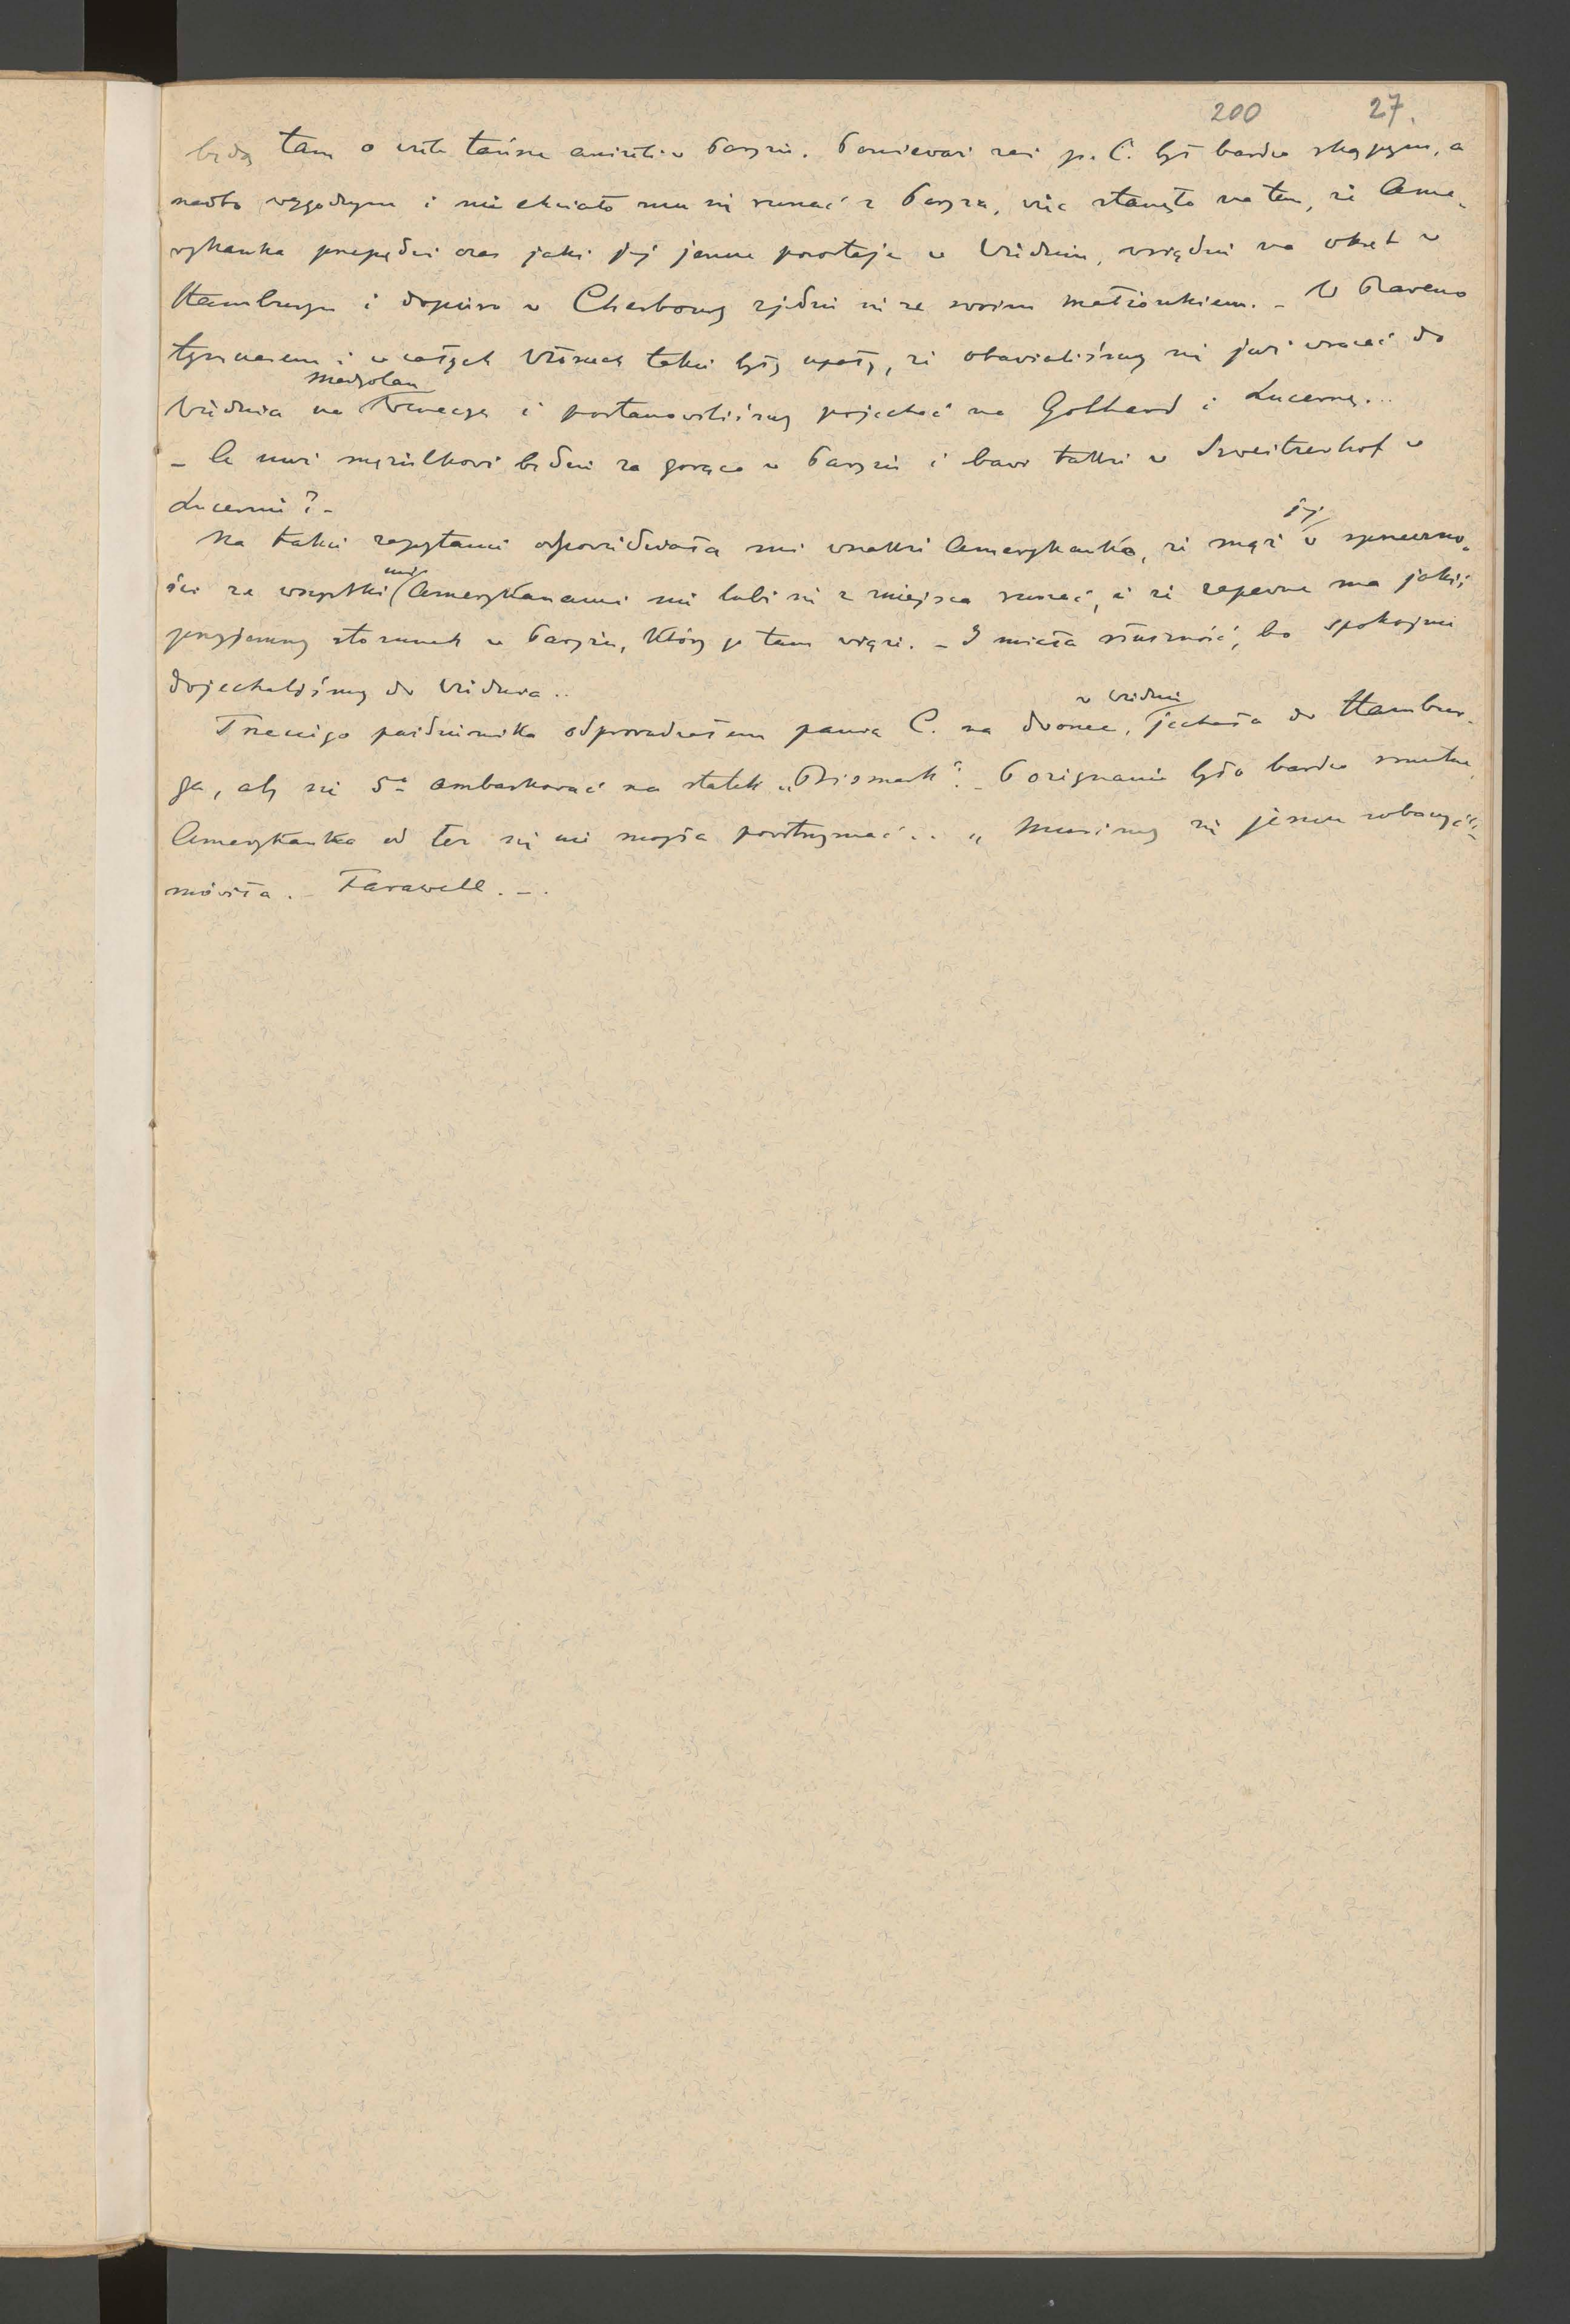 200 27.
będą tam o wiele tańsze aniżeli w Paryżu. Ponieważ zaś p. C. był bardzo skąpym, a
nadto wygodnym i nie chciało mu się ruszać z Paryża, więc stanęło na tem, że Ame-
rykanka przepędzi czas jaki jej jeszcze pozostaje w Wiedniu, wsiędzie na okręt w
Hamburgu i dopiero w Cherbourg zjedzie się ze swoim małżonkiem. - W Baveno
tymczasem i w całych Włoszech takie były upały, że obawialiśmy się już wracać do
Medyolan
Wiednia na Wenecyę i postanowiliśmy pojechać na Gothard i Lucernę...
- A nuż mężulkowi będzie za gorąco w Paryżu i bawi także w Szweitzerhof w
Lucernie? -
jej
Na takie zapytanie odpowiedziała mi wszakże Amerykanka, że mąż w sprzeczno-
mi
ści ze wszystkimi Amerykanami nie lubi się z miejsca ruszać, i że zapewne ma jakiś
przyjemny stosunek w Paryżu, który go tam więzi. - I miała słuszność, bo spokojnie
dojechaliśmy do Wiednia..
w Wiedniu
Trzeciego października odprowadzałem panią C. na dworzec, jechała do Hambur-
ga, aby się 5º ambarkować na statek „Bismark". - Pożegnanie było bardzo smutne,
Amerykanka od łez się nie mogła powstrzymać.. „Musimy się jeszcze zobaczyć" -
mówiła. - Farawell. - .